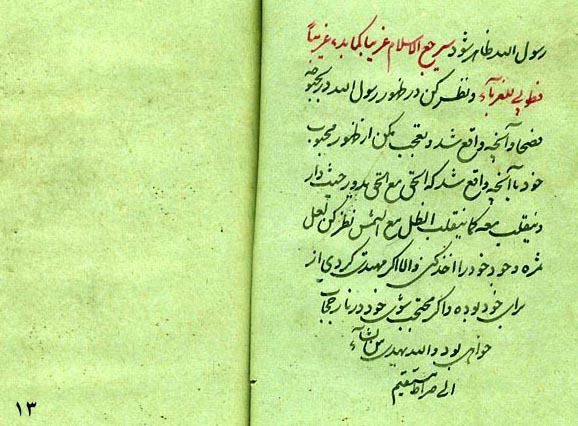 رسول الله ظاهر شود سیرجع الاسلام غریبا کما بدء غریباً
فطوبی للغرباء و نظر کن در ظهور رسول الله در بحبوحه
فصحا و آنچه واقع شد و تعجب مکن از ظهور محبوب
خود با آنچه واقع شد که الحق مع الحق یدور حیث دار
و ینقلب معه کما ینقلب الظل مع الشمس نظر کن لعل
ثمره وجود خود را اخذ کنی والا اگر مهتدی گردی از
برای خود بوده و اگر محتجب شوی خود در نار حجاب
خواهی بود والله یهدی من یشاء
الی صراط مستقیم
۱۳